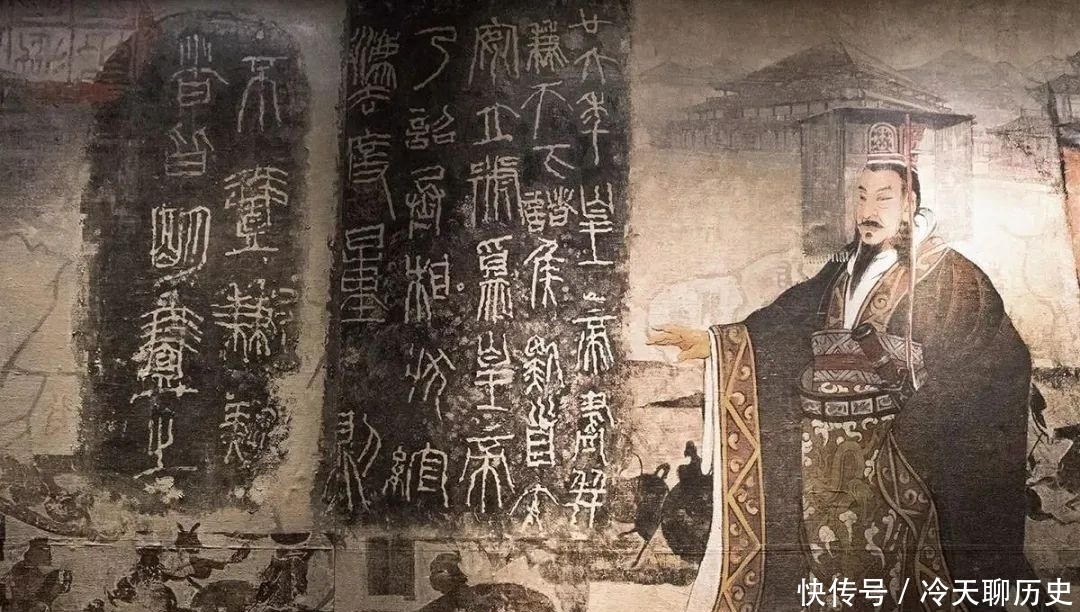 廿六年皇帝盡并
兼天下諸侯黔首大
安立號爲皇帝
乃詔丞相狀綰
灋度量則
不壹歉疑
者皆明壹之
快传号 / 冷天聊历史